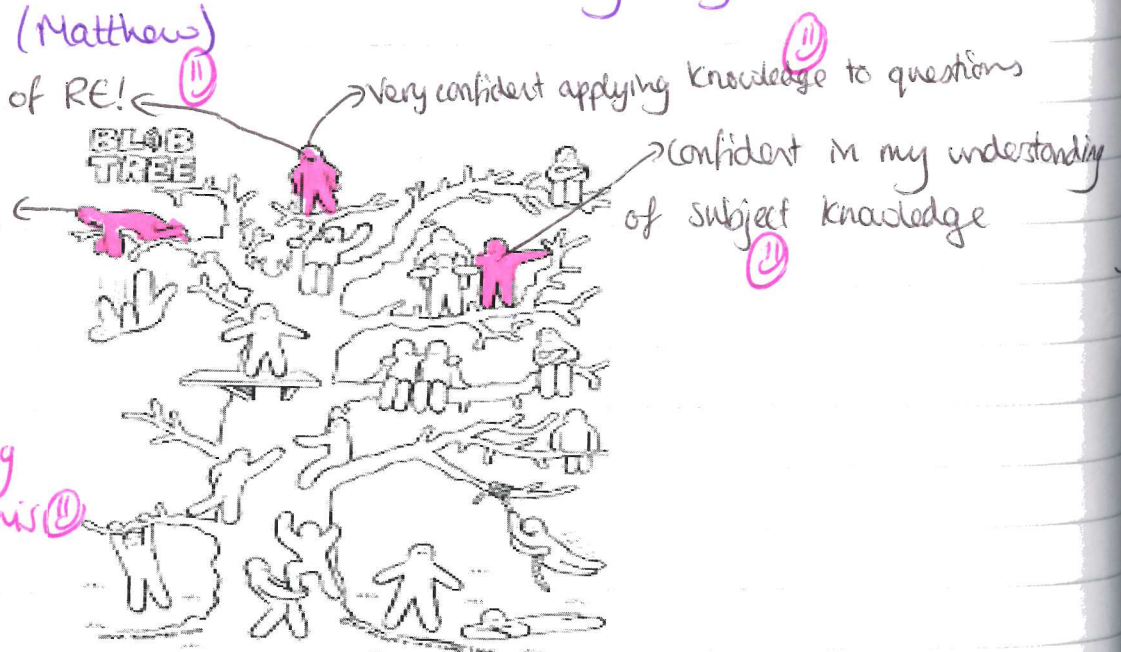 (Matthew)
of RE!
Very confident applying knowledge to questions
BLOB
TREE
Confident in my understanding
of subject knowledge